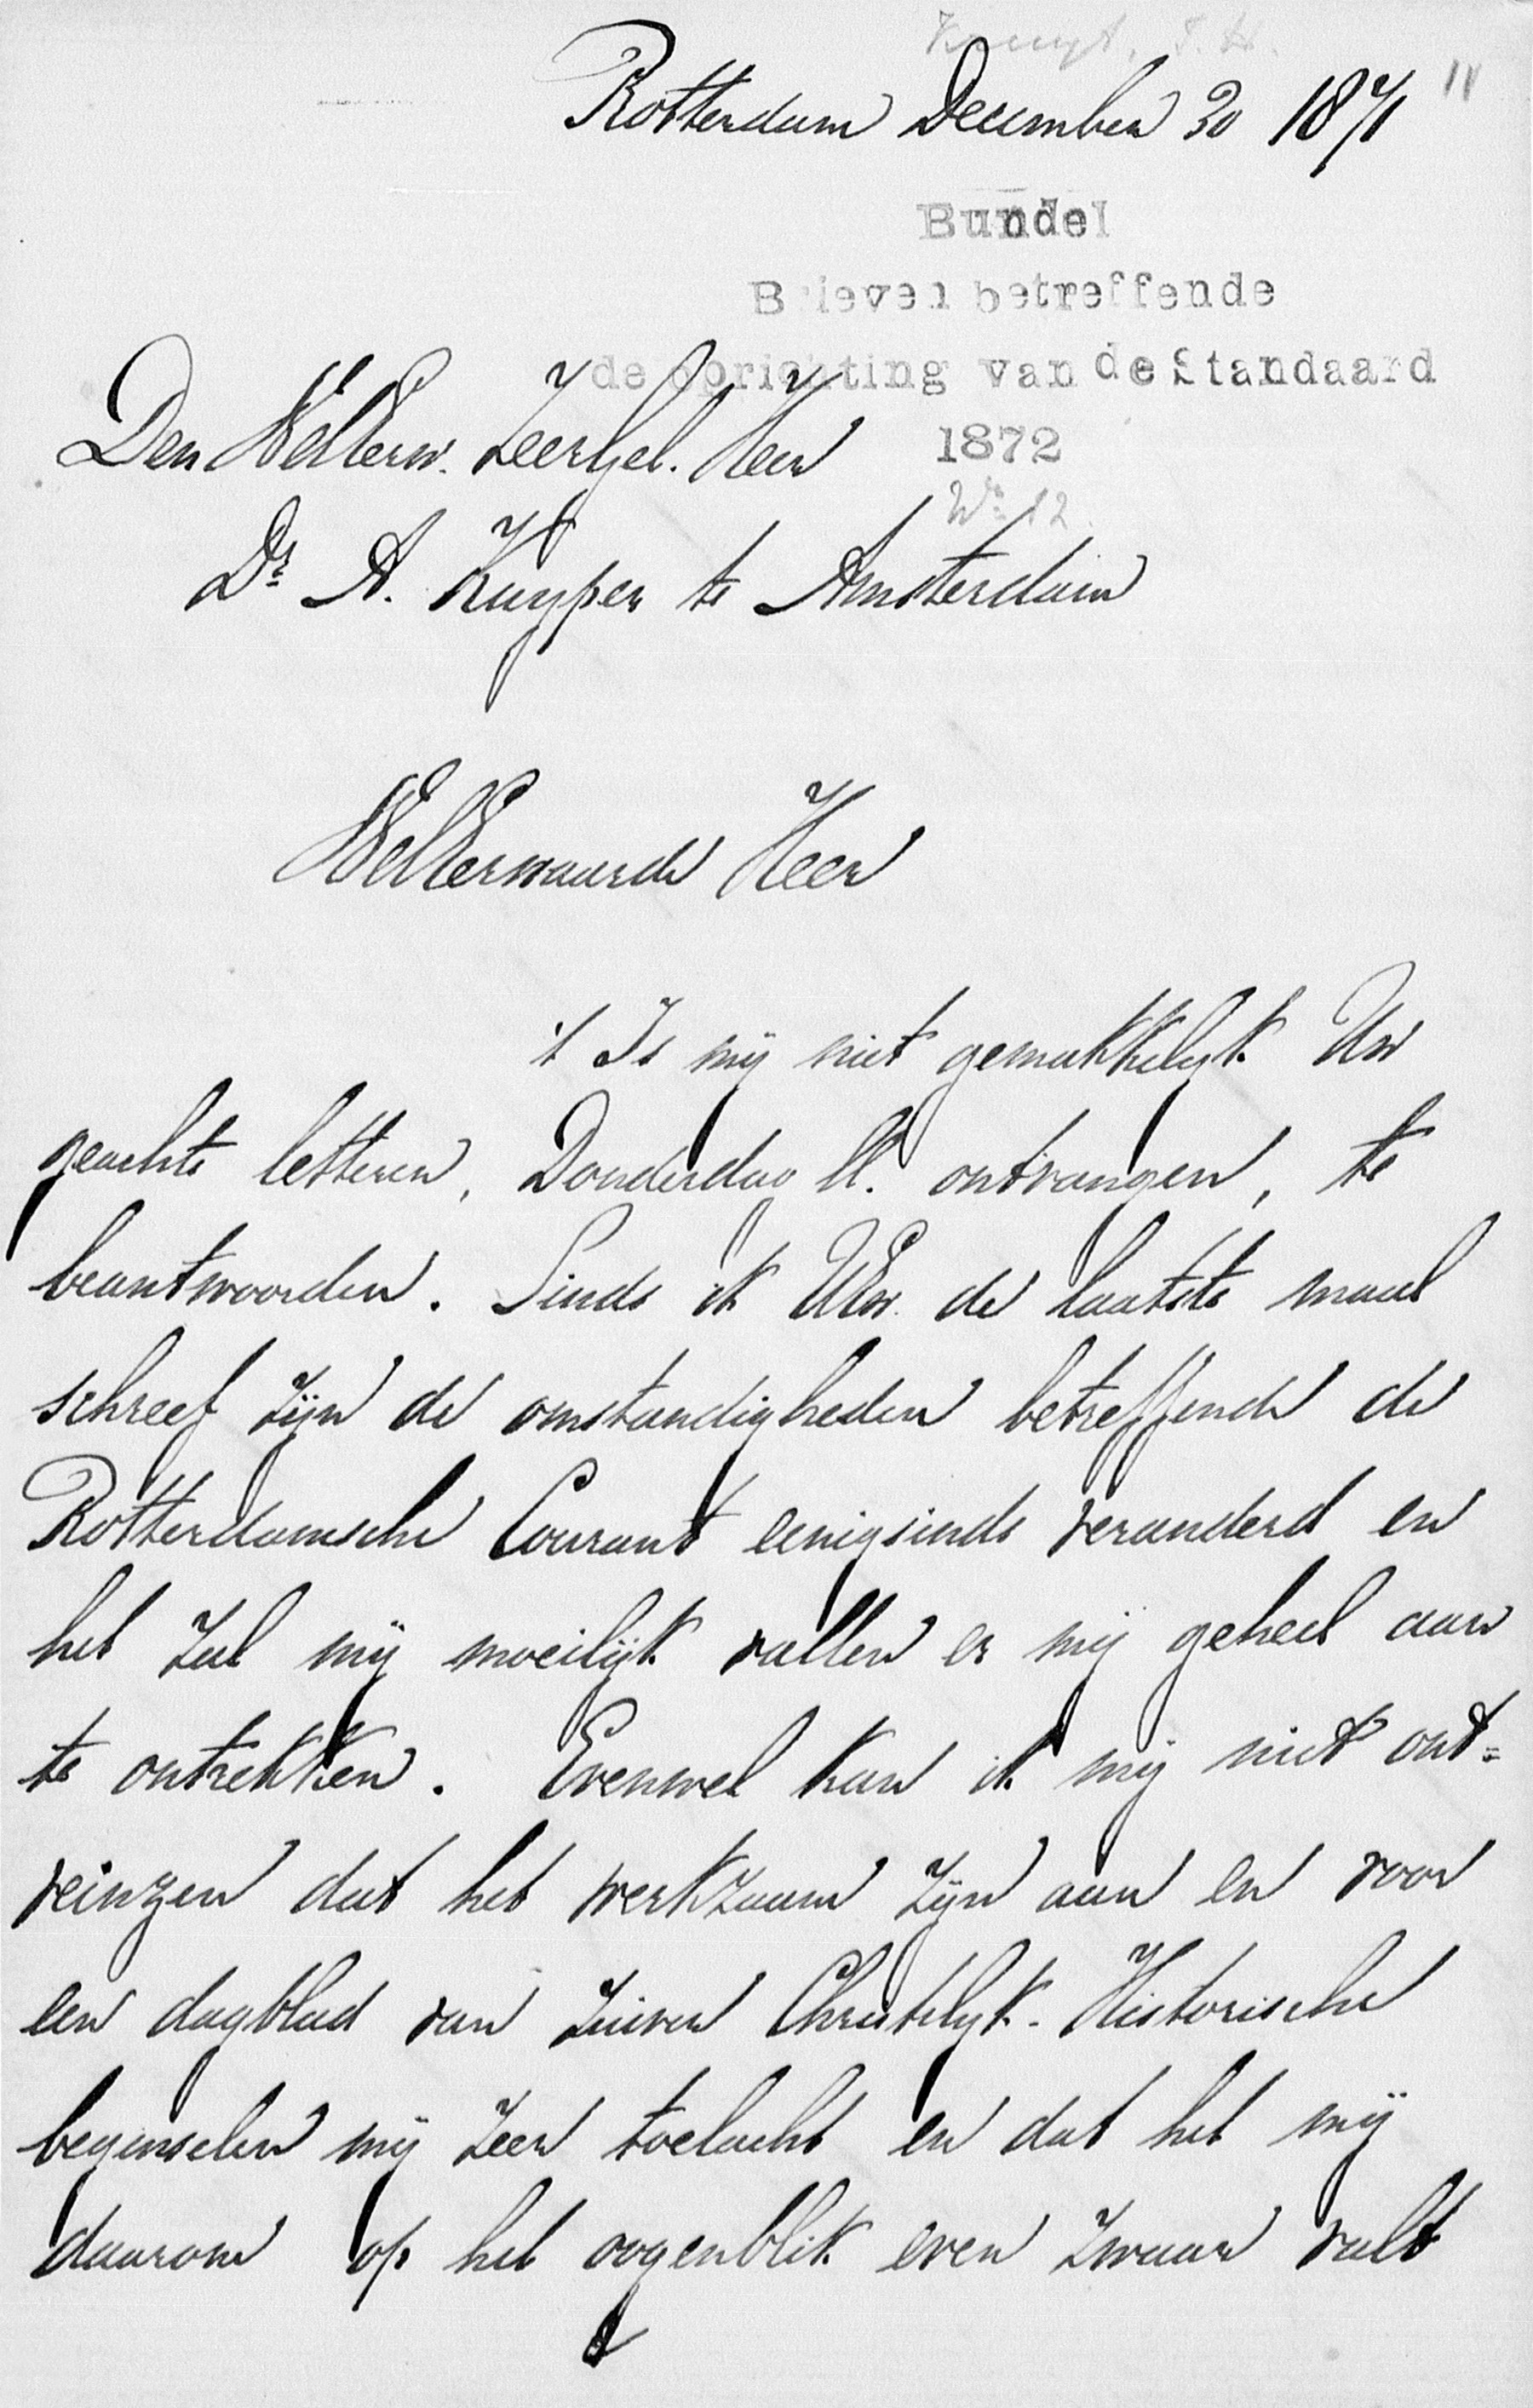 Kruyt, J. H.
Rotterdam December 30 1871
11
Bundel
Brieven betreffende
de oprichting van de Standaard
1872
Den WelEerw. ZeerGel. Heer
Dr A. Kuyper te Amsterdam
No 12.
WelEerwaarde Heer
't Is mij niet gemakkelyk Uw
geachte letteren, Donderdag ll. ontvangen, te
beantwoorden. Sinds ik UEw. de laatste maal
schreef zijn de omstandigheden betreffende de
Rotterdamsche Courant eenigsinds veranderd en
het zal mij moeilijk vallen er mij geheel aan
te ontrekken. Evenwel kan ik mij niet ont=
veinzen dat het werkzaam zijn aan en voor
een dagblad van zuiver Christelyk-Historische
beginselen mij zeer toelacht en dat het mij
daarom op het oogenblik even zwaar valt